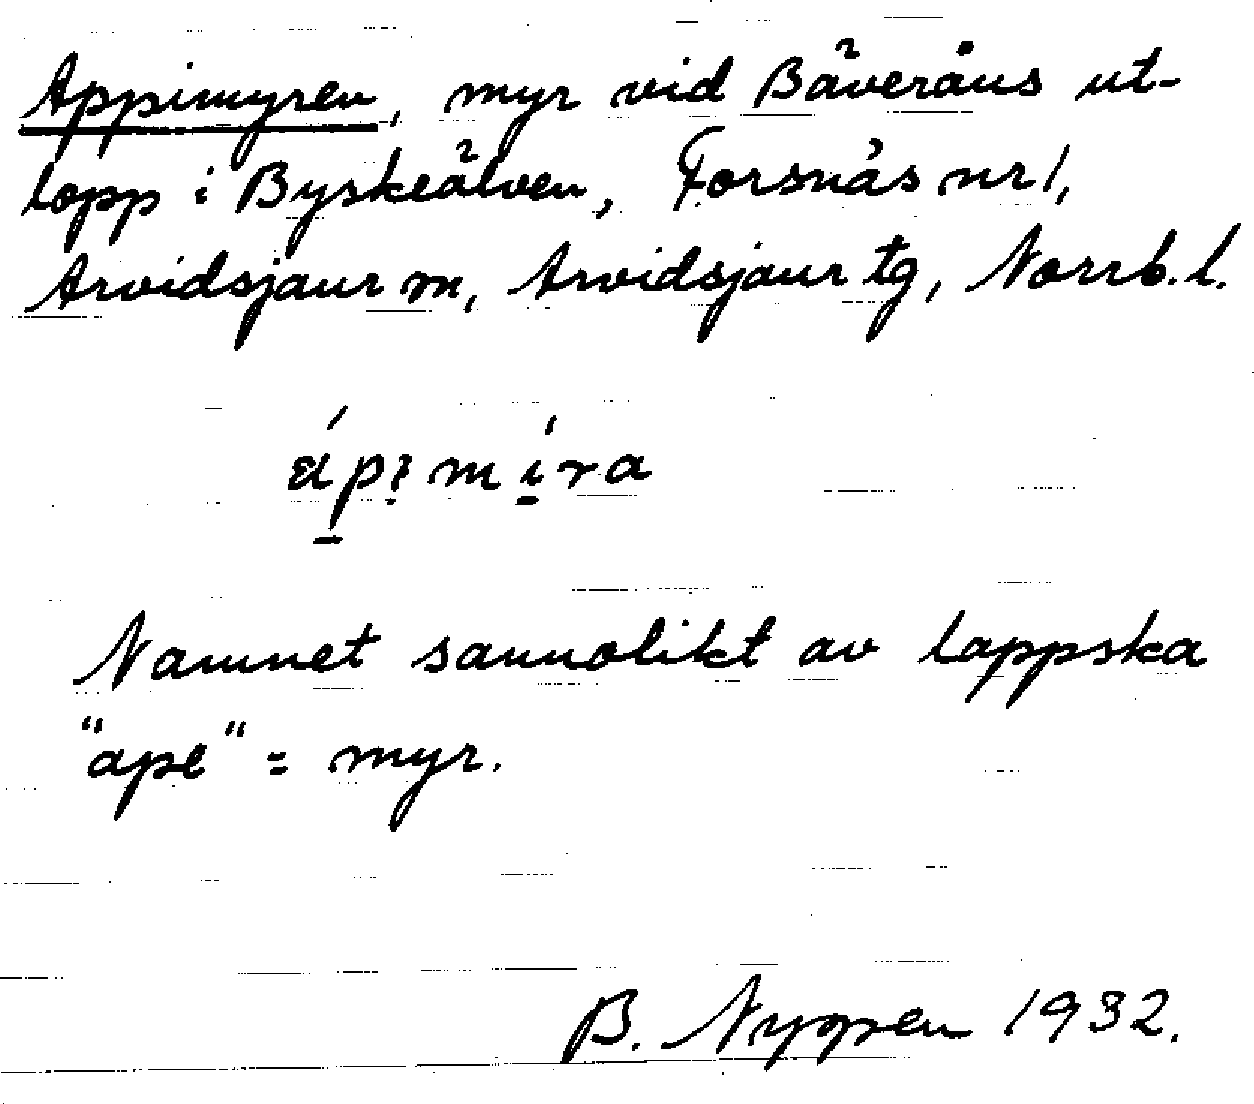 Appimyren, myr vid Bäveråns ut-
lopp i Byskeälven, Forsnäs nr 1,
Arvidsjaur sn, Arvidsjaur tg, Norrb. l.
Namnet sannolikt av lappska
"ape" = myr.
B. 1932.